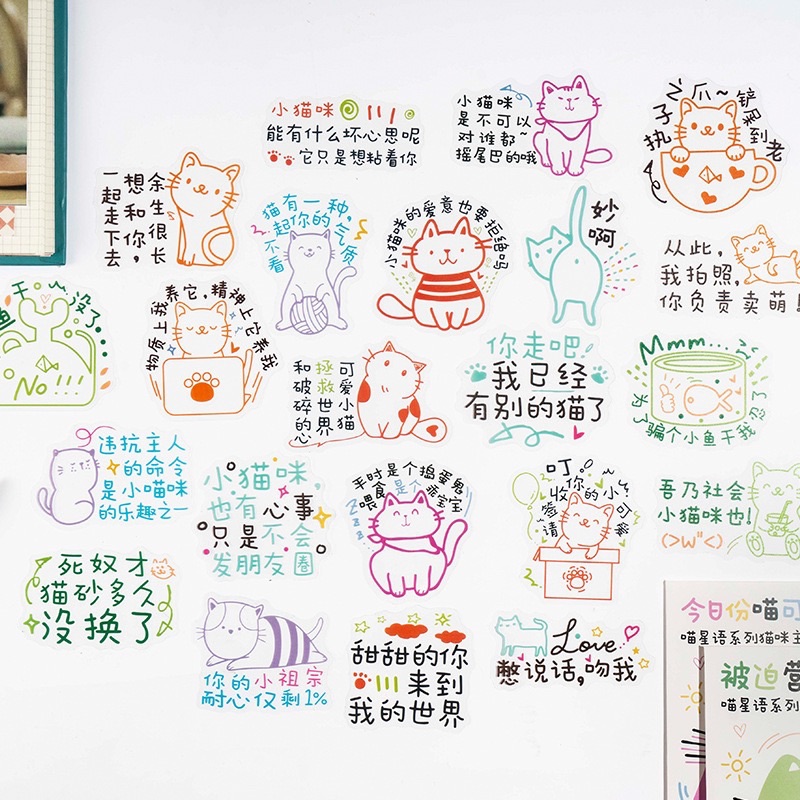 小猫咪
能有什么坏心思呢
它只是想粘着你
小猫咪
是不可以
对谁都~
摇尾巴的哦
执子之爪~铲屎到老
余生很长
想和你,
一起走下去
猫有一种,
看不起你的气质
小猫咪的爱意也要拒绝吗
妙啊
从此,
我拍照,
你负责卖萌!
鱼干~没了...
No!!!!
物质上我养它,精神上它养我
可爱小猫
拯救世界
和破碎的心
你走吧!
我已经
有别的猫了
Mmm...
为了骗个小鱼干我忍了
违抗主人
的命令
是小喵咪
的乐趣之一
小猫咪,
也有心事
只是不会
发朋友圈
平时是个捣蛋鬼
喂食是个乖宝宝
叮!
你的小可爱
请签收
吾乃社会
小猫咪也!
(>W"<)
死奴才
猫砂多久
没换了
你的小祖宗
耐心仅剩1%
甜甜的你
来到
我的世界
Love
憋说话,吻我
今日份喵可
喵星语系列猫咪主
被迫营
喵星语系列